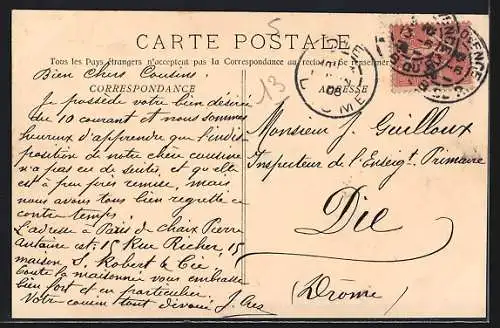 CARTE POSTALE
Tous les Pays étrangers n'acceptent pas la Correspondance au recto
CORRESPONDANCE
ADRESSE
13
Bien Chers Cousins.
Je possède votre bien désirée
du 10 courant et nous sommes
heureux d'apprendre que l'indis
position de notre chère cousine
n'a pas eu de suites, et qu'elle
est à peu près remise, mais
nous avons tous bien regretté ce
contre temps.
L'adresse à Paris de chaix Pierre
Antoine est: 15 Rue Richer, 15
maison S. Robert & Cie
toute la maisonnée vous embrasse
bien fort et en particulier.
Votre cousin tout dévoué J.
Monsieur J. Guilloux
Inspecteur de l'Enseigt Primaire
Die
(Drôme)